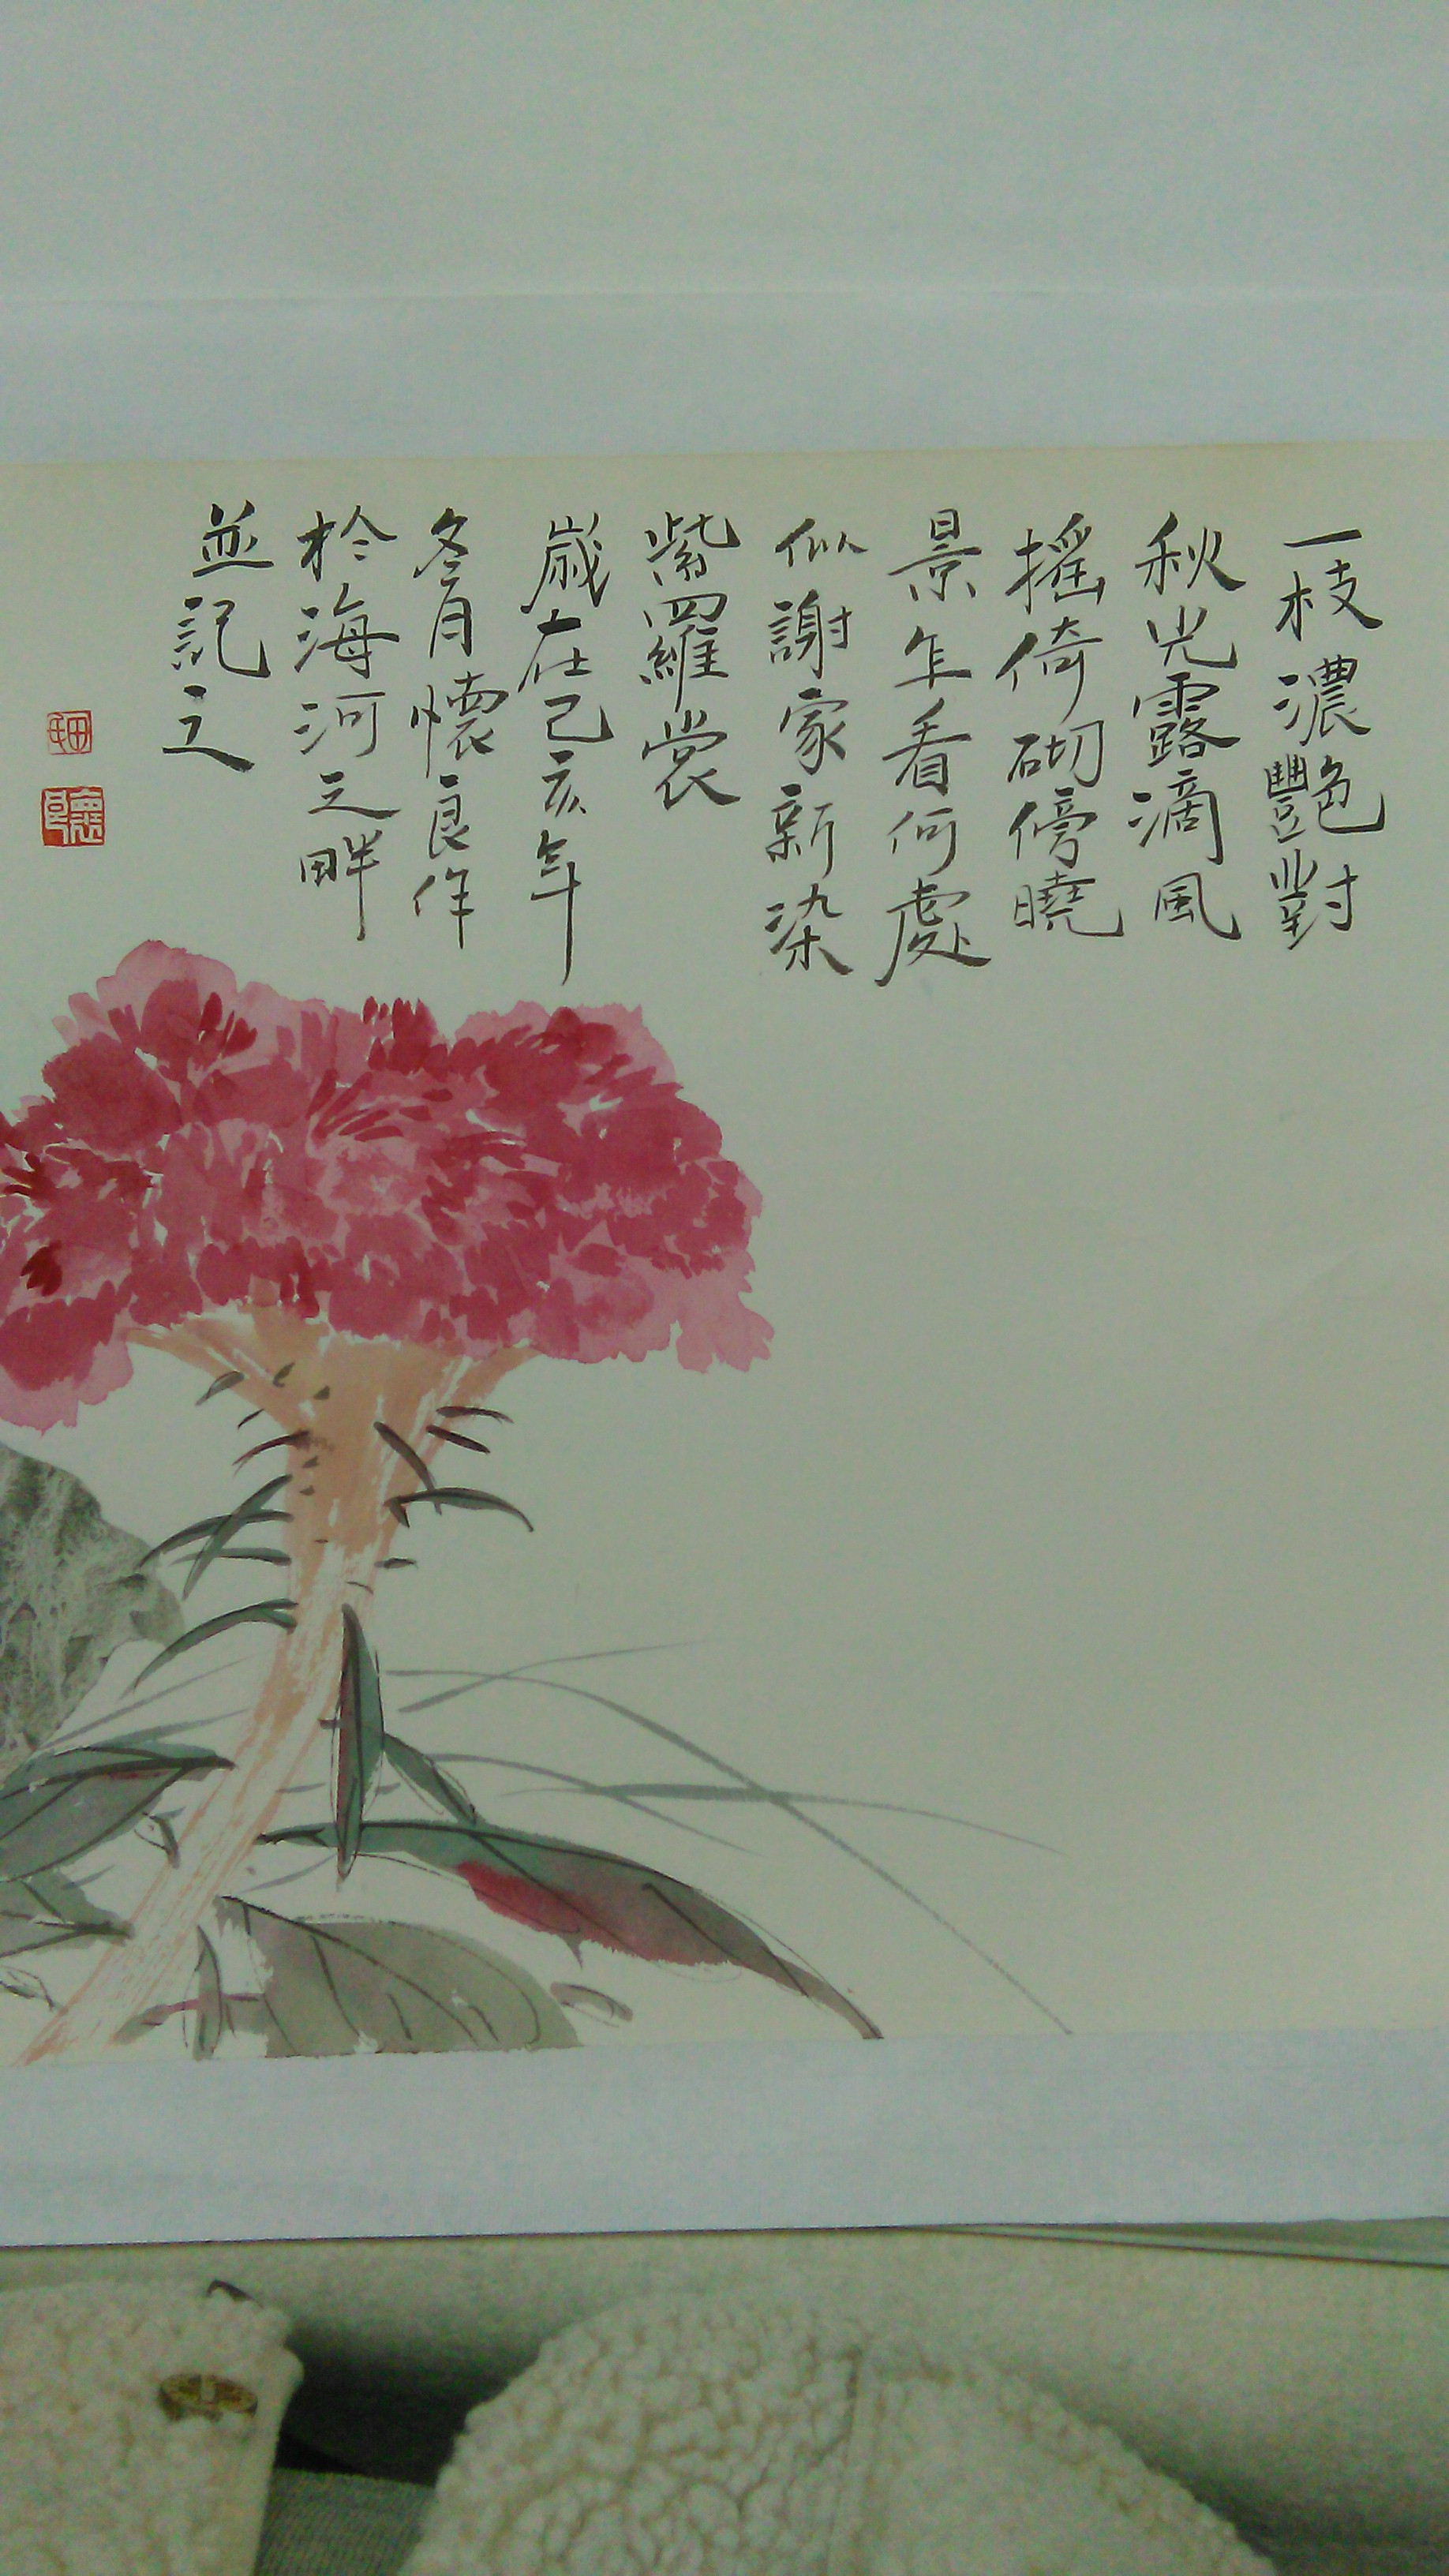 一枝濃艷對
秋光露滴風
搖倚砌傍曉
景乍看何處
似謝家新染
紫羅裳
歲在己亥年
冬月懷良作
於海河之畔
並記之